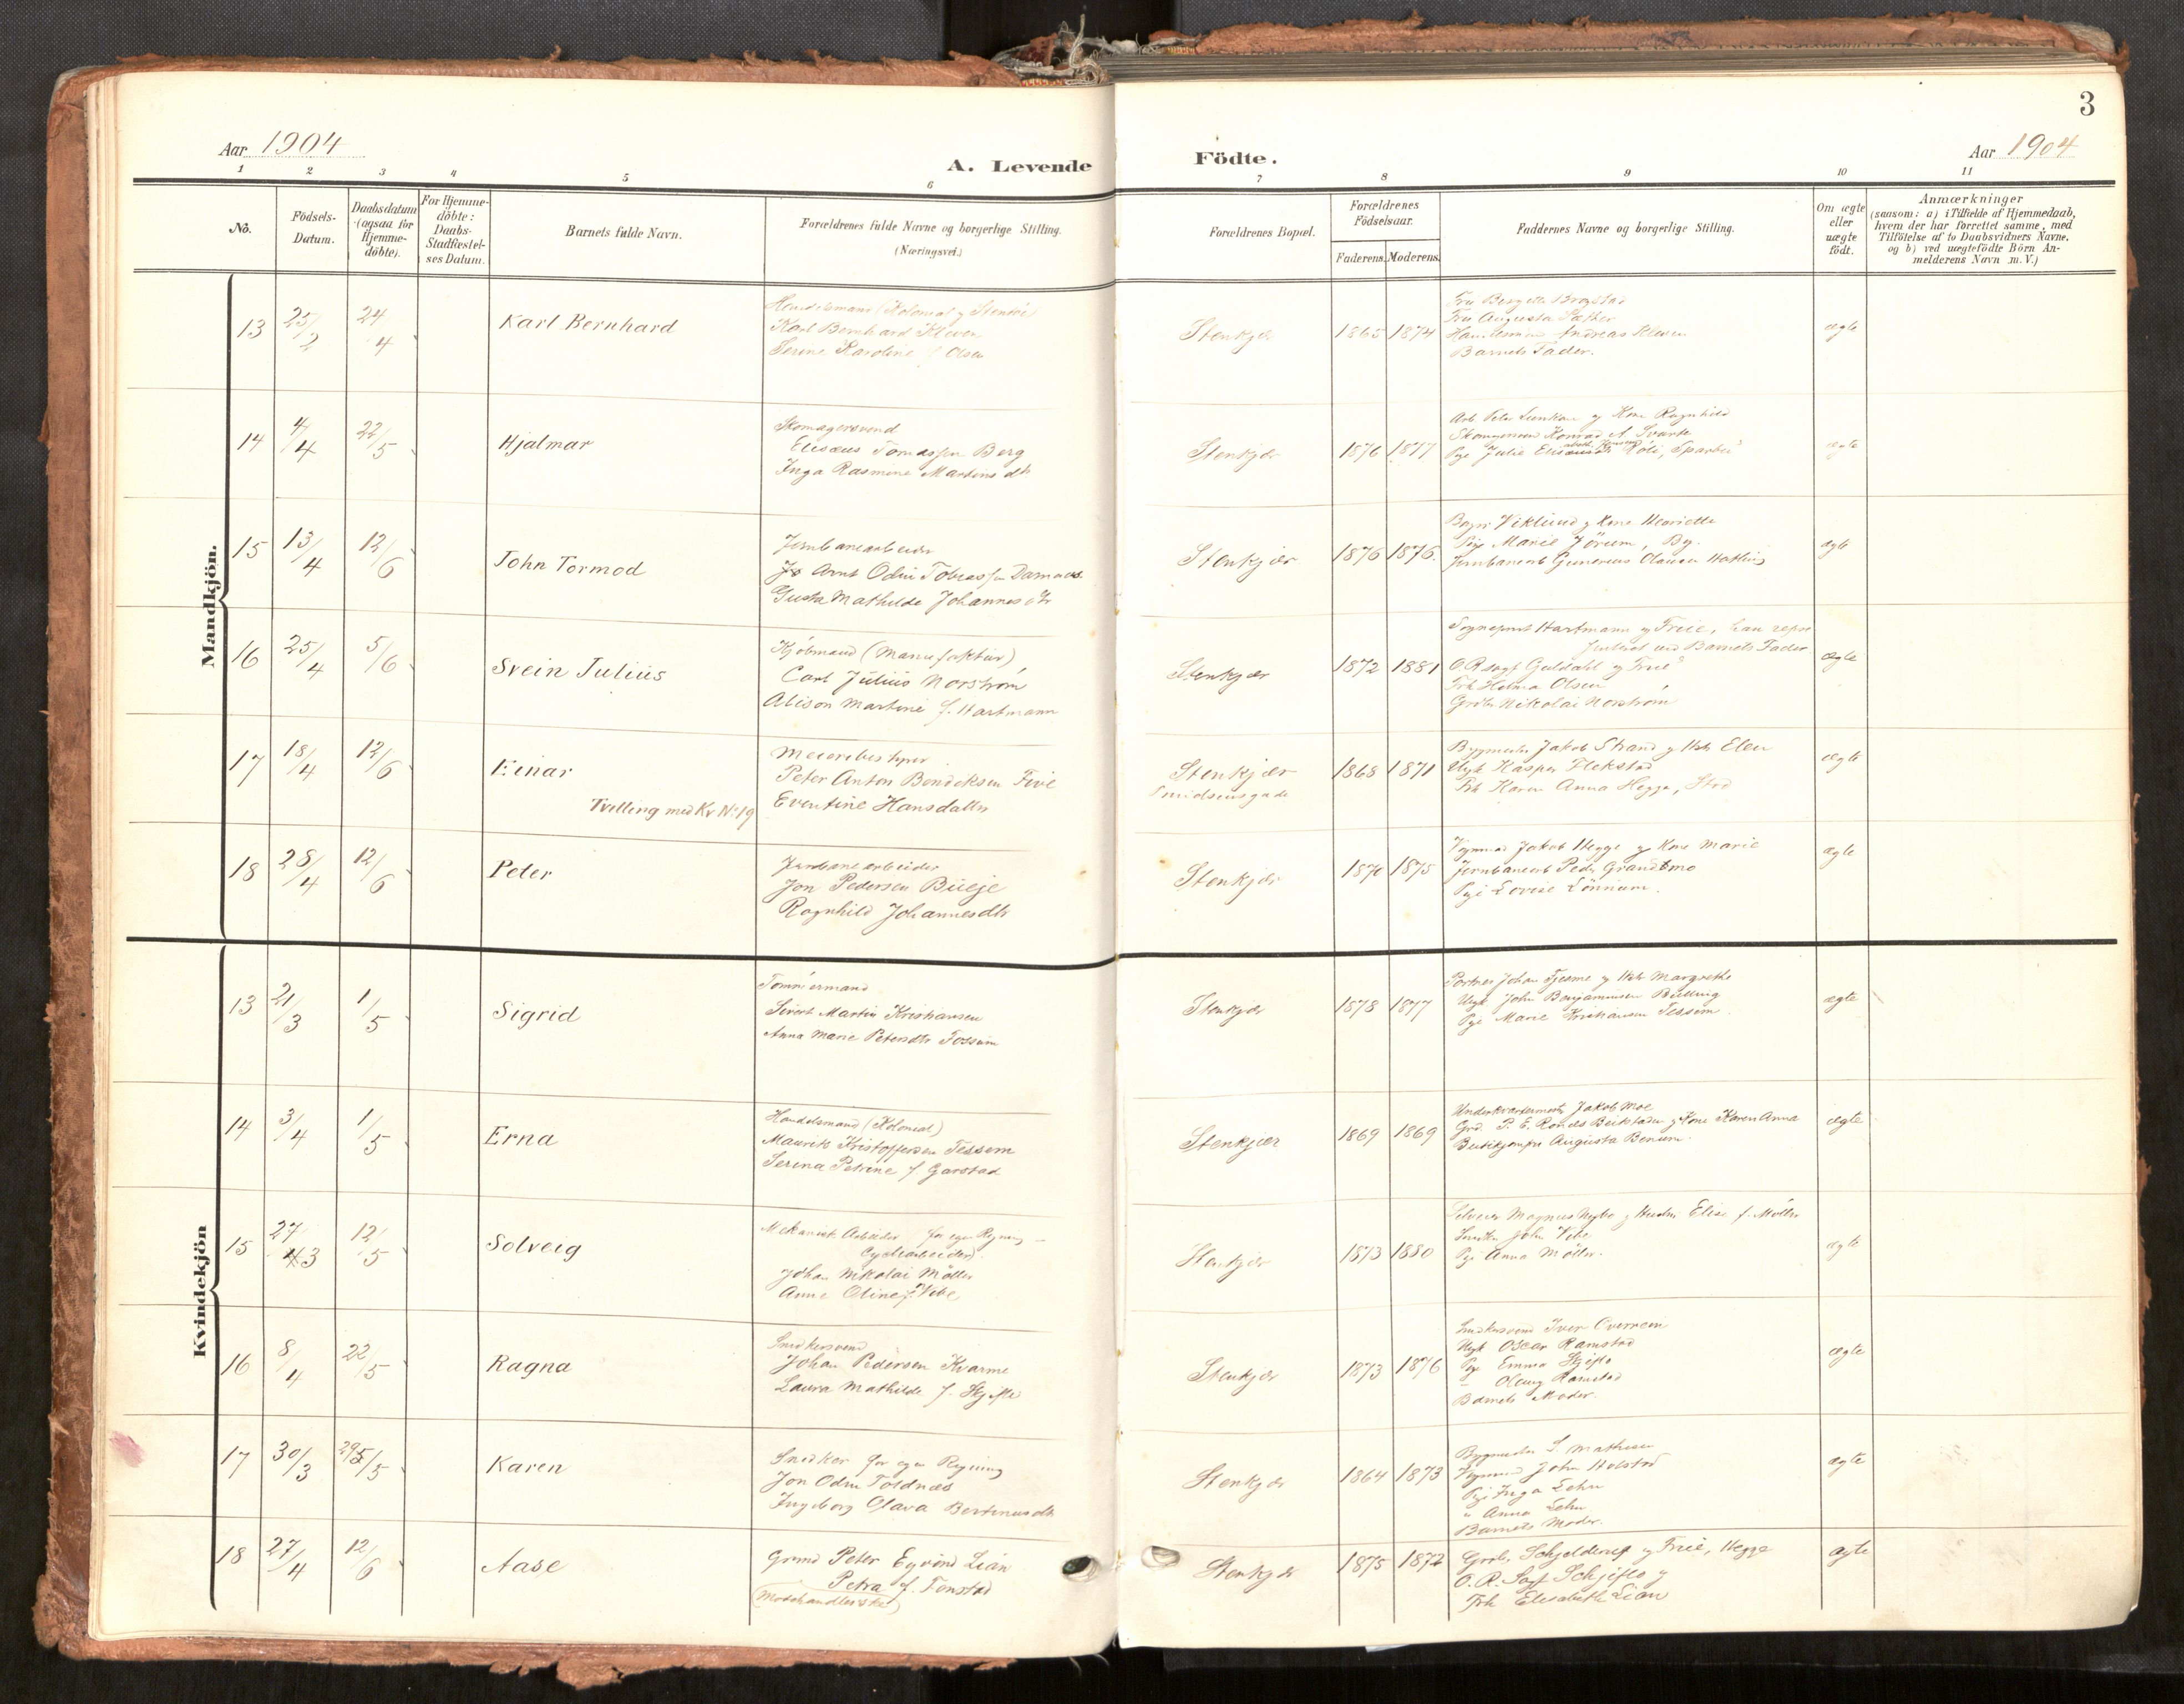 3
Aar 1904
A. Levende Födte.
Aar 1904
1 2 3 4 5 6 7 8 9 10 11
No.
Födsels-Datum.
Daabsdatum (ogsaa for Hjemme-döbte).
For Hjemme-döbte: Daabs-Stadfestel-ses Datum.
Barnets fulde Navn.
Forældrenes fulde Navne og borgerlige Stilling.
(Næringsvei.)
Forældrenes Bopæl.
Forældrenes Födselsaar.
Faderens. Moderens.
Faddernes Navne og borgerlige Stilling.
Om ægte eller uægte födt.
Anmærkninger
(saasom: a) i Tilfælde af Hjemmedaab,
hvem der har forrettet samme, med
Tilföielse af to Daabsvidners Navne,
og b) ved uægtefödte Börn An-
melderens Navn m. V.)
Mandkjön.
13 25/2 24/4 Karl Bernhard
Handelsmand (Kolonial
Karl Bernhard Kleven
Serine Karoline f Olsen
Stenkjær 1865 1874
Fru Bergette Brogstad
Fru Augusta Sæther
Handelsmand Andreas Kleven
Barnets Fader.
ægte
14 4/4 22/5 Hjalmar
Skomagersvend
Elisæus Tomassen Berg
Inga Rasmine Martinsdtr
Stenkjær 1876 1877
Arb Peter og Kone Ragnhild
Konrad A. Svarte
Pige Julie
ægte
15 13/4 12/6 John Tormod
Jernbanearbeider
Arnt Odin Tobiassen Damaas
Gusta Mathilde Johannesdtr
Stenkjær 1876 1876.
Viklund og Kone Henriette
Pige Marie Jörum, By.
Jernbanearb Gunerius Olausen Hatling
ægte
16 25/4 5/6 Svein Julius
Kjöbmand (Manufaktur)
Carl Julius Norström
Alison Martine f. Hartmann
Stenkjær 1872 1881
Sogneprest Hartmann og Frue, han repræ
senteret ved Barnets Fader
O.R.sagf Guldahl og Frue
Frk Helma Olsen
Grdbr Nikolai Norström
ægte
17 18/4 12/6 Einar
Tvilling med Kv No 19
Meieribestyrer
Peter Anton Bendiksen Five
Eventine Hansdatter
Stenkjær
Smidsensgade
1868 1871
Bygmester Jakob Strand og Hstr Elen
Ungk Kasper Flekstad
Frk Karen Anna Hegge, Stod
ægte
18 28/4 12/6 Peter
Jernbanearbeider
Jon Pedersen Bueje
Ragnhild Johannesdtr
Stenkjær 1870 1875
Vognmand Jakob Hegge og Kone Marie
Jernbanearb Peder Grandemo
Pige Lovise Lönnum.
ægte
Kvindekjön
13 21/3 1/5 Sigrid
Tömmermand
Sivert Martin Kristiansen
Anna Marie Petersdtr Fossum
Stenkjær 1878 1877
Portner Johan Fjesme og Hstr Margrethe
Ungk John Benjaminsen Bulling
Pige Marie Kristiansen Tessem
ægte
14 3/4 1/5 Erna
Handelsmand (Kolonial)
Maurits Kristoffersen Tessem
Serina Petrine f. Garstad
Stenkjær 1869 1869
Underkvartermester Jakob Moe
Grd. P. E. og Kone Karen Anna
Butikjomfru Augusta Benum.
ægte
15 27/3 12/5 Solveig
Mekanisk Arbeider for egen Regning
Cyclearbeider
Johan Nikolai Möller
Anne Oline f. Vibe
Stenkjær 1873 1880
Magnus Nybo og Hustru Elise f. Möller
John Vibe
Pige Anna Möller.
ægte
16 8/4 22/5 Ragna
Snedkersvend
Johan Pedersen Kvarme
Laura Mathilde f. Skjefte
Stenkjær 1873 1876
Snedkersvend Iver Overrem
Ungk Oscar Ramstad
Pige Emma Skjefte
" Olaug Ramstad
Barnets Moder.
ægte
17 30/3 29/5 Karen
Snedker for egen Regning
Jon Odin Toldnæs
Ingeborg Olava Bertinusdtr
Stenkjær 1864 1873
Bygmester S. Mathisen
Vognmd John Holstad
Pige Inga Lehn
" Anna Lehn
Barnets Moder.
ægte
18 27/4 12/6 Aase
Grmd Peter Eyvind Lian
Petra f. Tonstad
(Modehandlerske)
Stenkjær 1875 1872
Grosr. Schjelderup og Frue, Hegge
O. R. Sagf Schjeflo og
Frk Elisabeth Lian
ægte